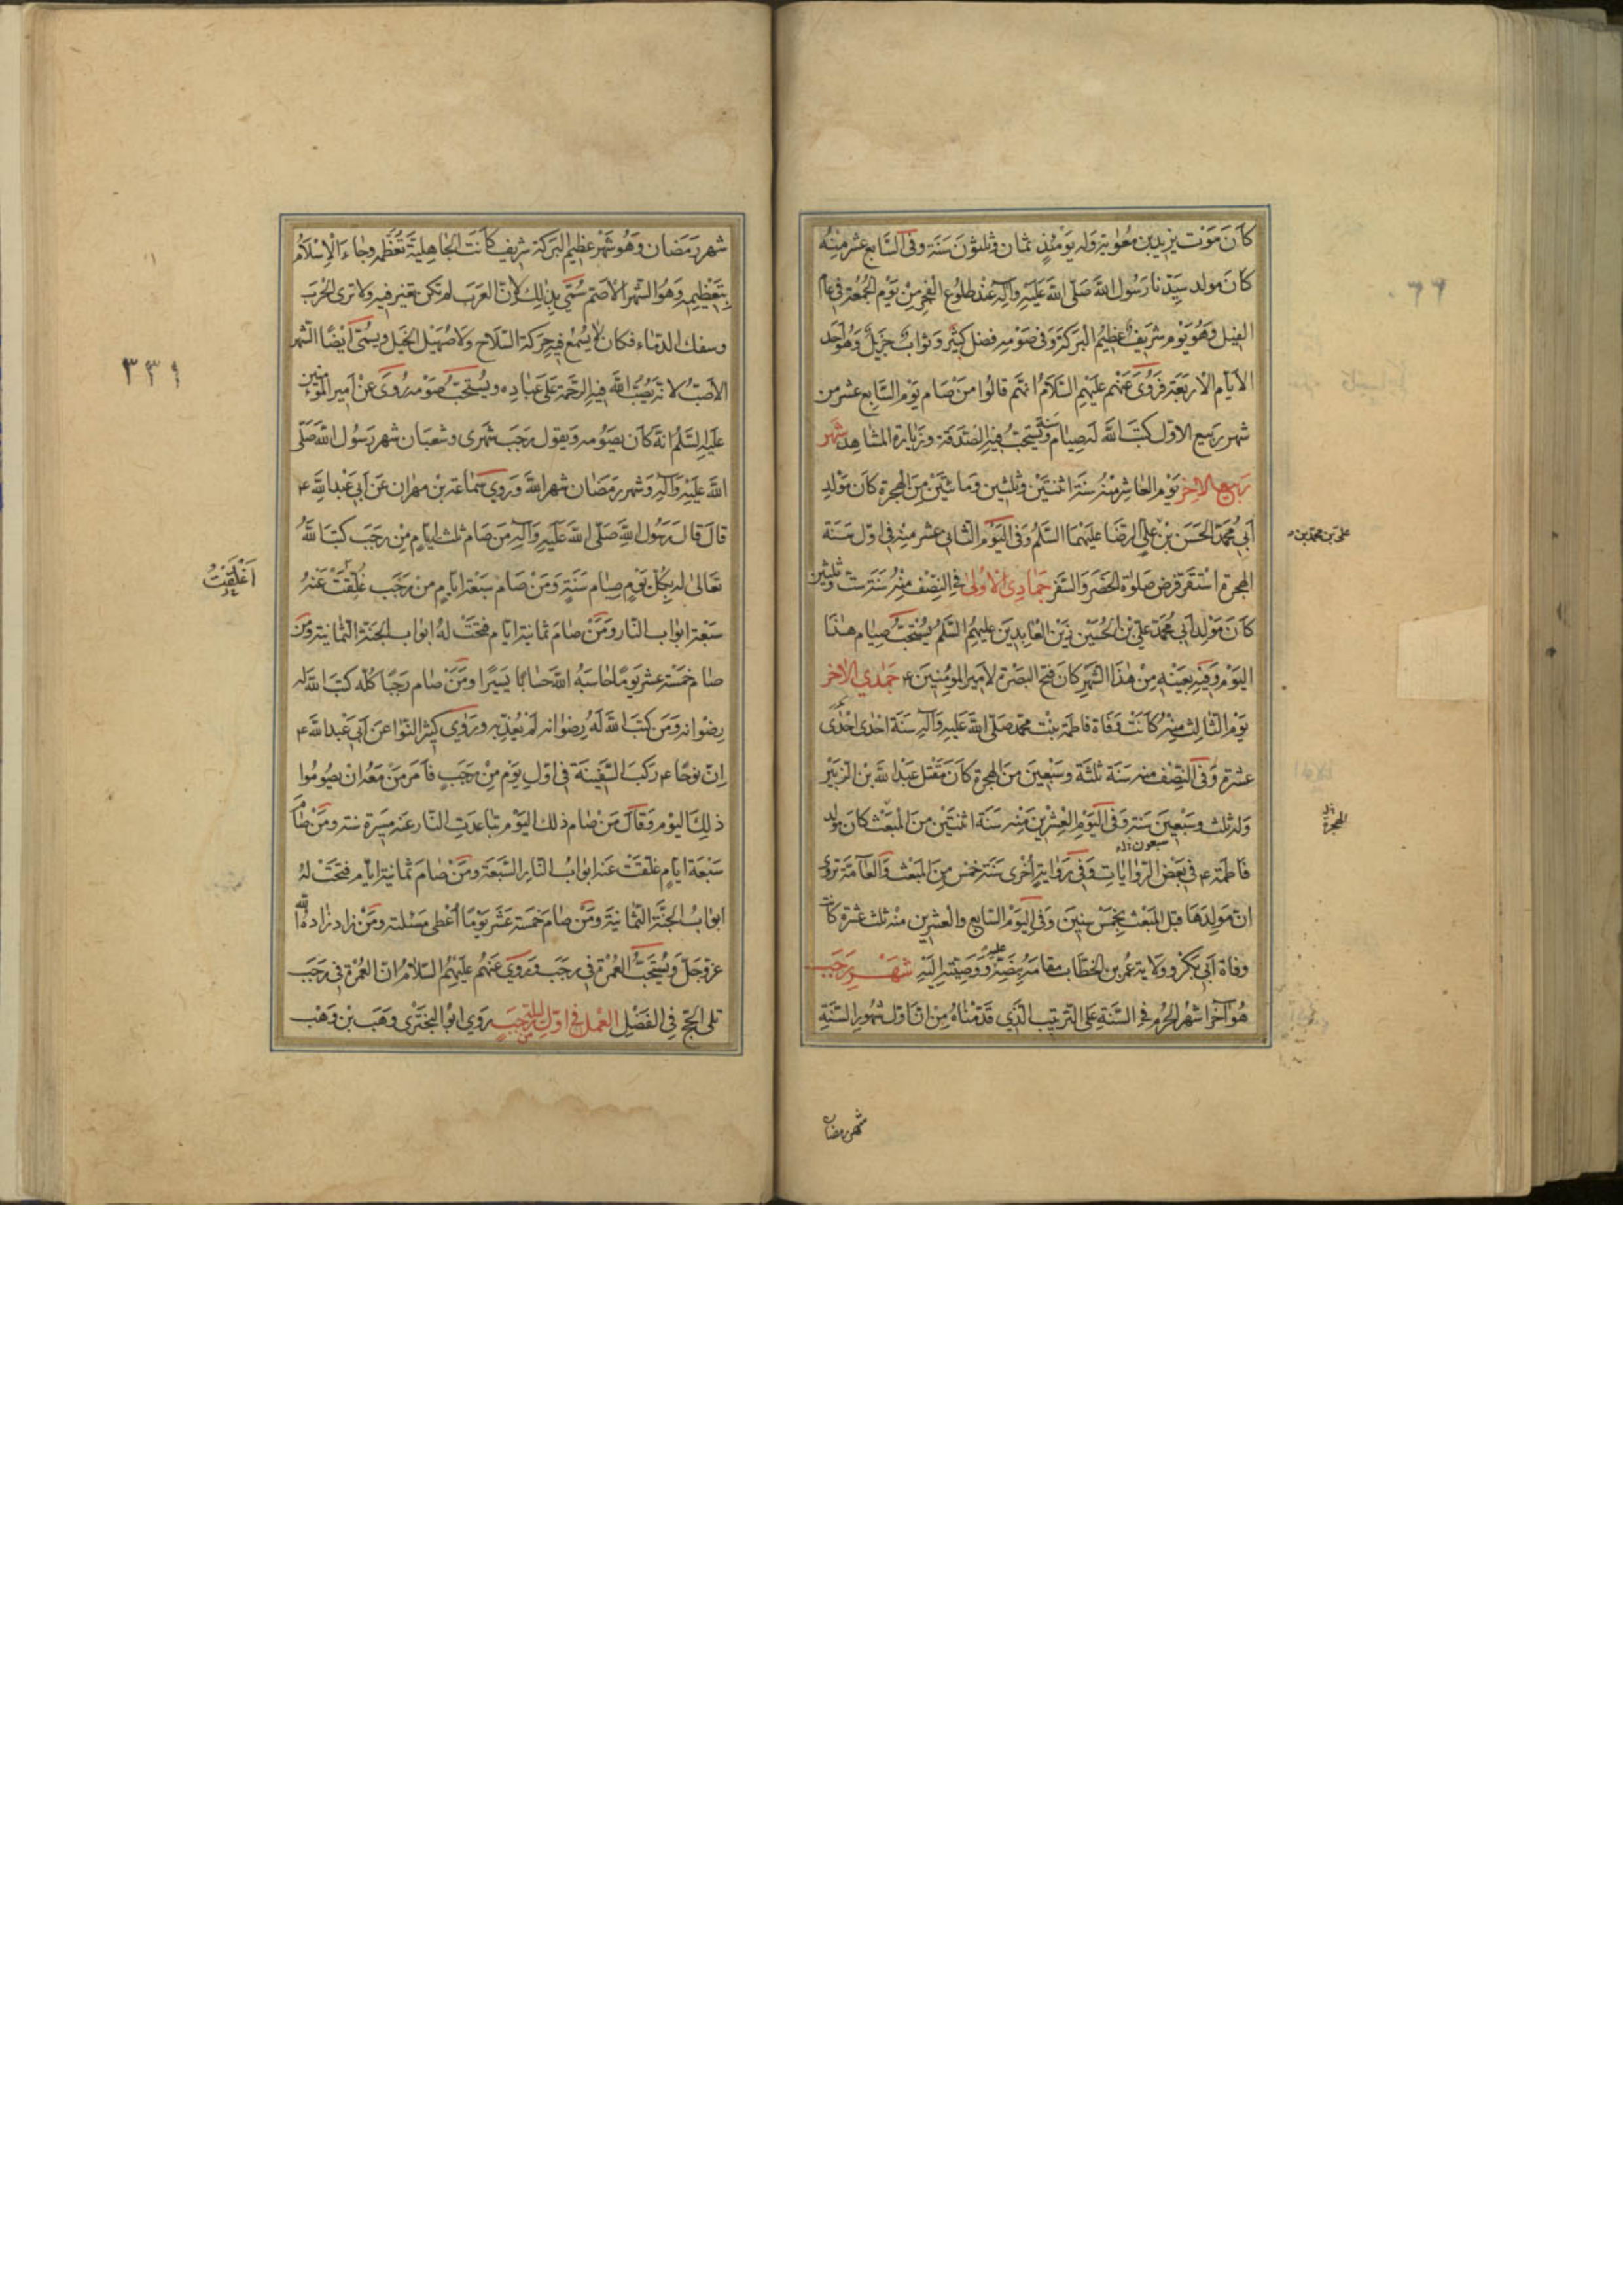 كَانَ مَوْت يزيد بن مُعٰوية وله يَوْمَئِذٍ ثمان وثلثونَ سَنَة وفى السَّابع عشر مِنهُ
كانَ مولد سَيّدنا رَسُول اللَّه صَلّى اللهُ عَلَيْهِ وآلِهِ عندَ طلوُع الفجر مِنْ يَوْم الجُمُعَة فى عام
الفيل وهُو يَوْم شريفٌ عظيمُ البَركَةِ وَفى صَوْمِه فضل كثيرٌ وثوابٌ جزيلٌ وَهُو اَحَد
الأيّام الاربَعَة فرَوُىَ عَنْهُم عَلَيْهِم السَّلَامُ انّهم قالُوا مَنْ صَام يَوْم السَّابِع عشر من
شهر رَبيع الاوّل كتبَ اللهَ لَهِ صِيٰامَ سَنَةٍ وَيُسْتَحَبُّ فيهِ الصّدَقة وزيَارة المشاهِد شهر
رَبيع الاخِر يَوْم العَاشر مِنهُ سَنَة اثنتَيْن وثلثين وَمائتَيْن مِنَ الهِجرة كانَ مَوْلِد
أبى مُحَمَّد الحَسَن بْن عَلىّ الرّضَا عَليْهِمَا السَّلمُ وَفى اليَوْم الثّانى عشر مِنْه فى اول سَنَة
علىّ بن محمّد بن
الهجرة اسْتقَرّ فرض صَلوٰة الحَضَر وَالسَّفَر جمَادِىٰ الأولىٰ فى النِصْف مِنْهُ سَنَة ست وثلثين
كانَ مَوْلِد أبى مُحَمَّد عَلىّ بْن الحُسَيْن زَيْن العابِدِينَ عَليهمُ السّلمُ يُسْتحَبُّ صِيٰام هٰذا
اليَوْم وَفيهِ بِعَيْنِهِ مِنْ هٰذا الشَّهْر كانَ فتح البَصْرَة لأمير المؤمِنينَ ع جمٰدي الاخر
يَوْم الثّالِث مِنهُ كانَتْ وَفاة فاطمة بنت محمّد صَلّى اللهُ عَليهِ وَآلِهِ سَنَة احدى احْدٰى
عشرة وَفى النّصْف منه سَنَة ثلثَة وسَبْعينَ منَ الهِجرة كانَ مَقتل عَبْد اللهِ بن الزبَيْر
وله ثلث وسَبْعينَ سَنَة وَفى اليَوْم العِشرينَ مِنْه سَنَة اثنتَيْن منَ المَبْعَث كانَ مولِد
للهجرة
سبعون
فاطمة ع فى بَعْض الرّوٰايٰاتِ وَفى رَوٰايةٍ اُخْرى سَنَة خَمْس مِن المَبْعث وَالعَامَّة تروى
انّ مَولِدَهَا قبل المَبْعث بِخَمْس سِنِينَ وَفى اليَوْم السّابع والعشرين منه ثلث عشرة كانَت
وفاة أبى بَكْر وولاية عُمر بن الخطّاب مقامهُ بِنَصّهِ عليه وَوَصِيّتِهِ اليْهِ شهر رَجَب
هُو آخر اشهُر الحُرم فى السَّنَة عَلى التّرتيب الّذي قدّمْناهُ مِنْ انّ اوّل شهُور السَّنَة
شهر رمضان
شهر رَمَضَان وَهُو شَهْر عظيم البَركَة شريف كانَتِ الجٰاهِليّة تُعَظّمه وجٰاءَ الإسْلامُ
بِتَعْظِيمِهِ وَهُوَ الشّهر الأصَمّ سُمّى بِذٰلِكَ لأنّ العَرَب لم تكن تغير فيه ولا ترى الحْرَب
وسفك الدّماء فكان لا يُسْمَعُ فيه حركة السّلاح وَلا صَهيْل الخيْل ويسُمّى ايْضًا الشّهر
٣٣٩
الأصَبّ لانّه يَصُبُّ الله فيه الرّحمة عَلى عِبَادِه ويُسْتحَبُّ صَوْمه رُوىَ عَنْ امير المؤمنين
عَليْهِ السّلمُ انّه كان يصُومه وَيقول رَجَب شهرى وشعبان شهر رَسُول الله صَلّى
اللهُ عَليْهِ وَآلِهِ وَشهر رمَضان شهر اللهِ وَروى سَماعة بن مهران عَن أبى عَبْد اللهِ ع
قال قالَ رَسُول الله صَلّى اللهُ عَليهِ وَآلِهِ مَن صَام ثلثه ايّام مِنْ رَجَب كتَبَ اللهُ
تعَالى له بِكلّ يَوْم صِيام سَنَةٍ وَمَنْ صَامَ سَبْعة ايّام من رَجَب غُلّقَتْ عَنْهُ
اَغْلِقَتْ
سَبْعة ابواب النّار ومَنْ صَام ثمانية ايّام فتحَتْ لهُ ابواب الجنّة الثّمانية ومَن
صٰام خَمْسة عشر يَوْمًا حٰاسَبَهُ اللهُ حسَابًا يَسِيرًا ومَنْ صٰام رجَبًا كلّه كتبَ اللهُ له
رضْوانه وَمَن كتَبَ اللهُ لَهُ رِضْوانه لَمْ يُعَذّبْه وروي كثير النّوا عَن أبى عَبْد اللهِ ع
اِنّ نوحًا ع رَكَبَ السَّفينة فى اوّل يَوْم مِنْ رجَبٍ فأمَرَ مَنْ مَعَهُ انْ يصُومُوا
ذٰلكَ اليَوْم وَقالَ مَنْ صٰام ذلك اليَوْم تباعَدَتِ النّار عَنه مَسِيرَة سنة ومَنْ صٰامَ
سَبْعَة ايّام غلّقَتْ عَنه ابوابُ النّار السّبْعَة ومَنْ صَام ثمانية ايّام فتحَتْ لهُ
ابوابُ الجنّة الثّمانية ومَنْ صٰام خَمْسَة عَشَر يَوْمًا اُعْطى مَسْئلته ومَنْ زاد زاده الله
عزّ وجَلّ ويُسْتحَبُّ العُمْرة فى رجَب ورَوى عَنهُم عَليْهِمُ السَّلامُ انّ العُمْرة فى رجَب
تلى الحَجّ فى الفَضْل العَمل فى اوّل ليلة من رجَبٍ رَوي ابوُ البختَرْى وهَب بْن وَهْب